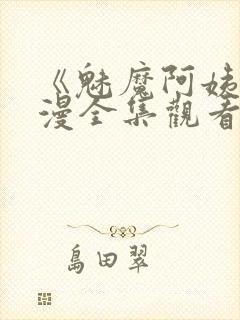 《魅魔阿姊
漫全集觀看
島田翠